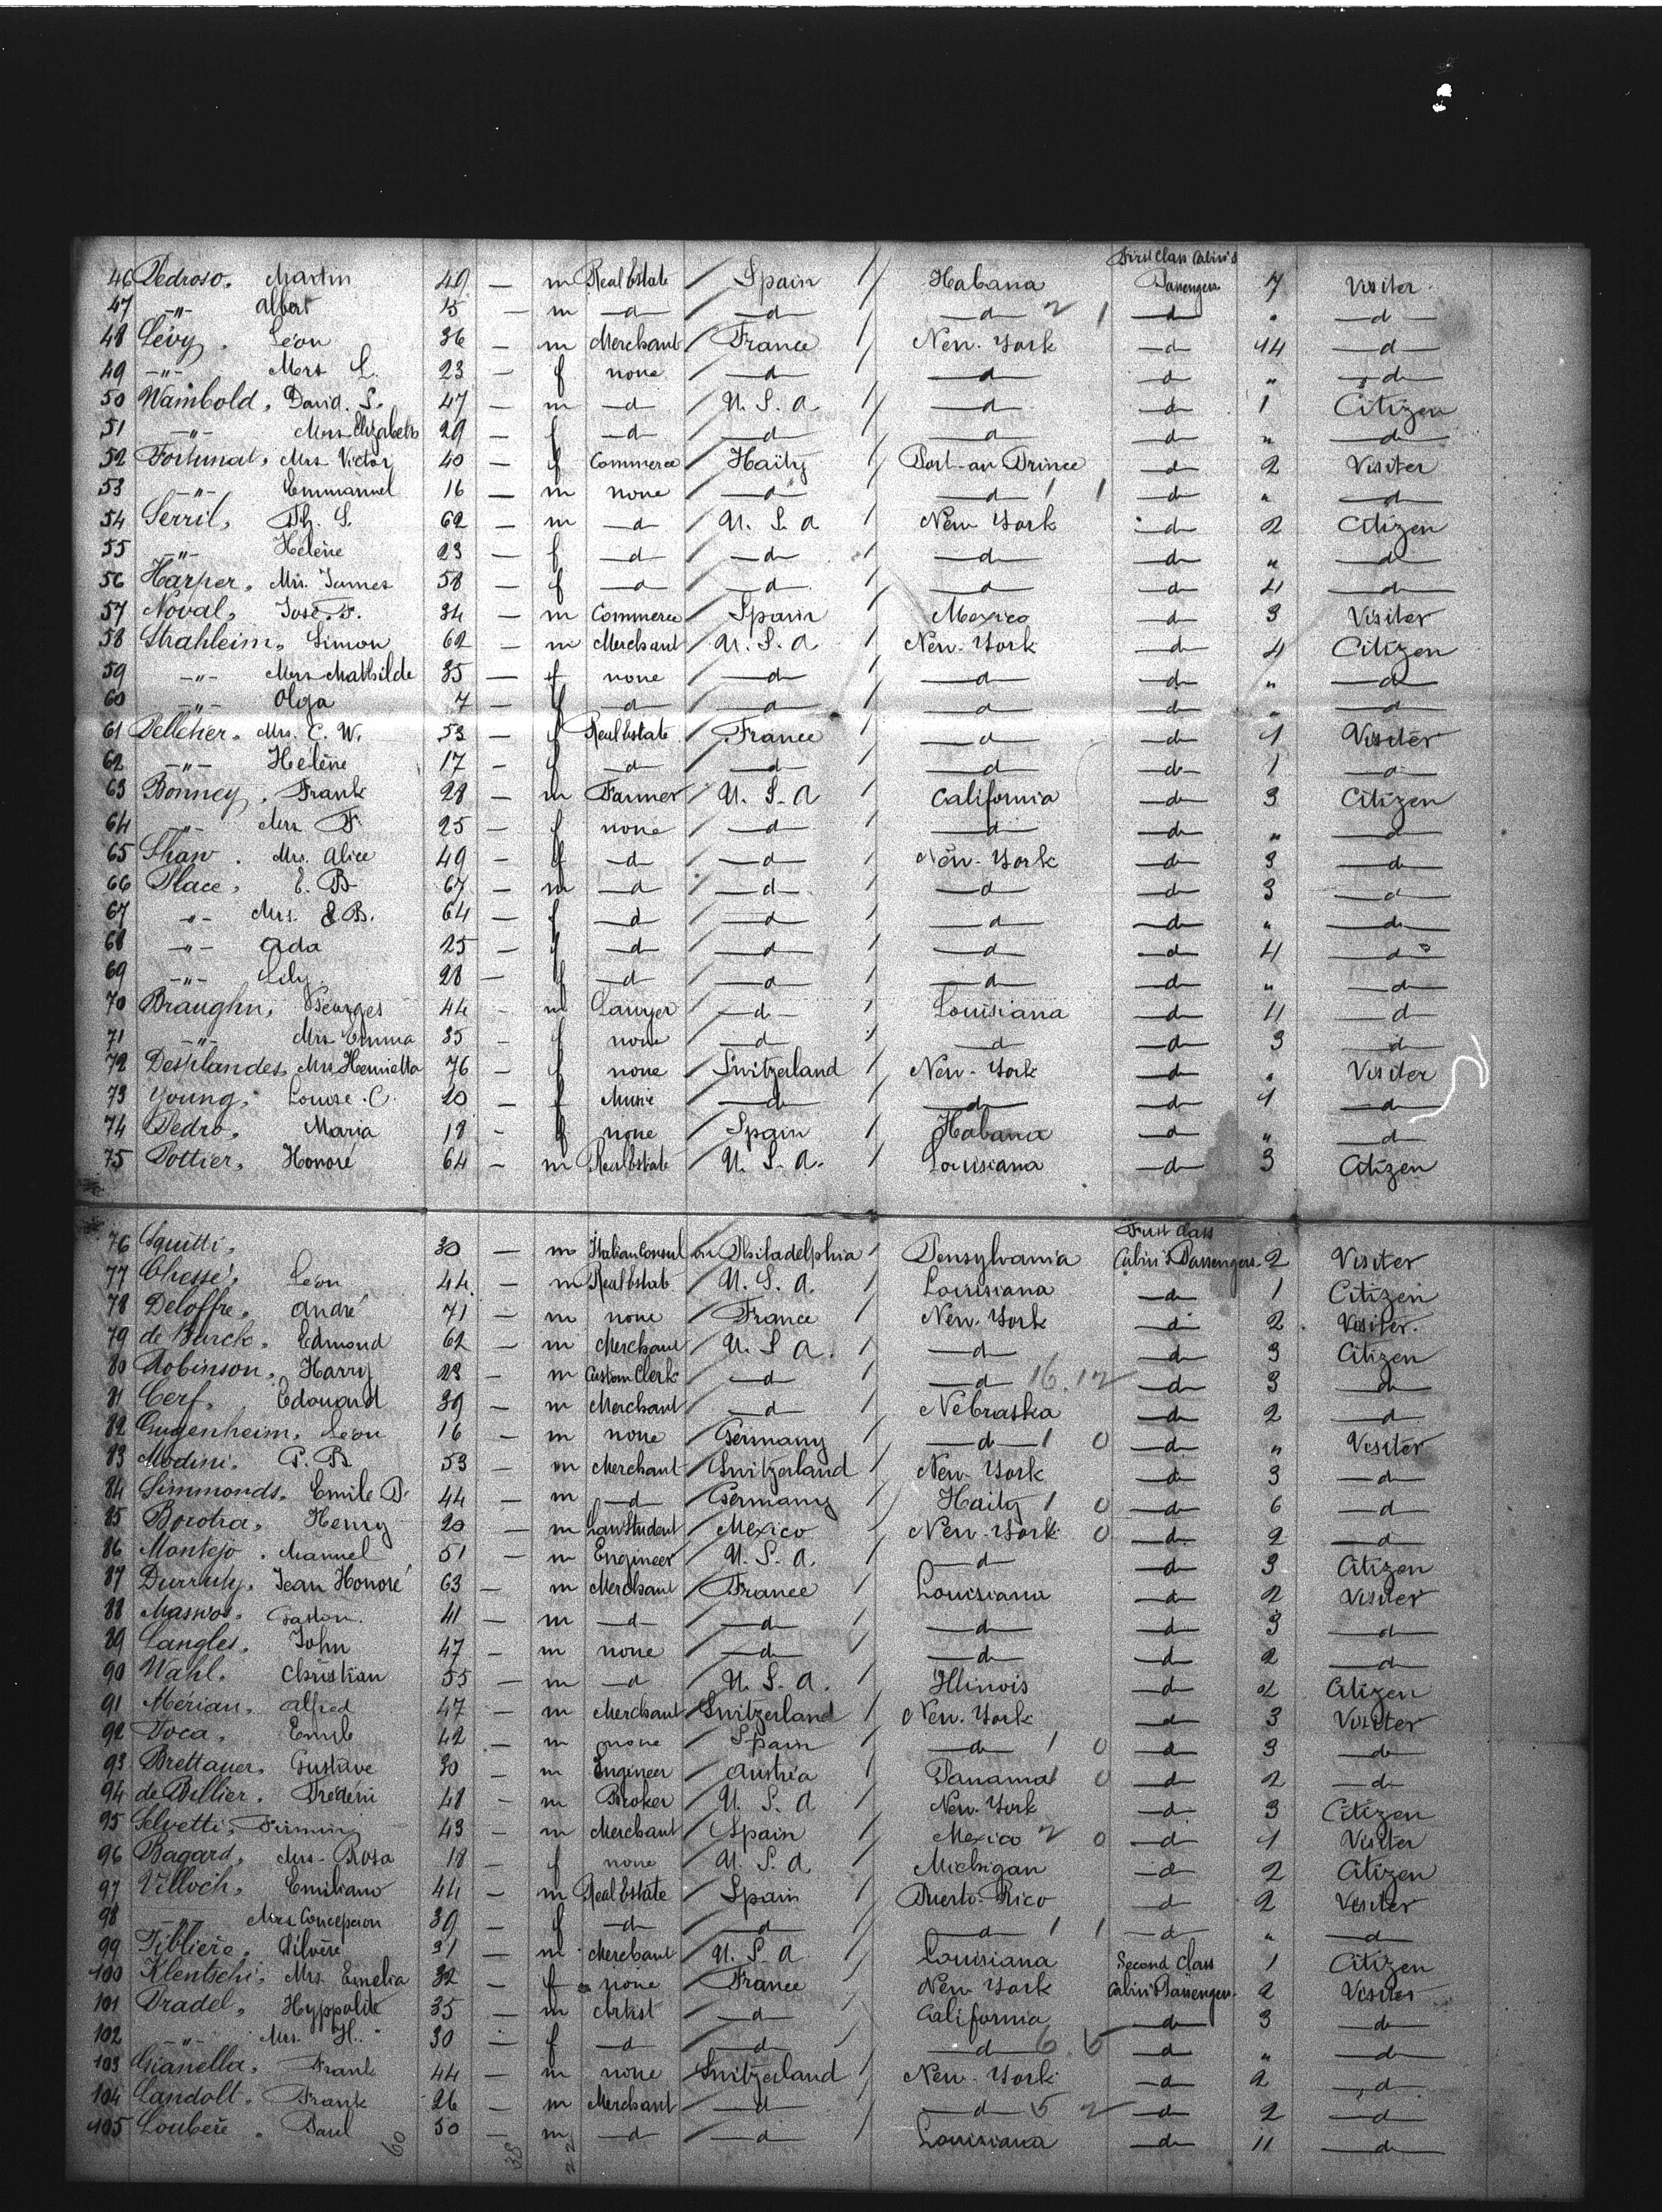 First Class Cabin's
46 Pedroso. Martin 49 — m Real Estate / Spain / Habana Passengers 7 Visiter
47 —"— Albert 15 — m —d— / —d— / —d— 2 1 —d— " —d—
48 Lévy. Léon 36 — m Merchant / France / New-York —d— 14 —d—
49 —"— Mrs L. 23 — f none / —d— / —d— —d— " —d—
50 Wambold. David. S. 47 — m —d— / U. S. A / —d— —d— 1 Citizen
51 —"— Mrs Elizabeth 29 — f —d— / —d— / —d— —d— " —d—
52 Fortunat. Mrs Victor 40 — f Commerce / Haïty / Port-au Prince —d— 2 Visiter
53 —"— Emmanuel 16 — m none / —d— / —d— 1 1 —d— " —d—
54 Serril. Th. S. 62 — m —d— / U. S. A / New York —d— 2 Citizen
55 —"— Helène 23 — f —d— / —d— / —d— —d— " —d—
56 Harper. Mrs. James 58 — f —d— / —d— / —d— —d— 4 —d—
57 Noval. José. F. 34 — m Commerce / Spain / Mexico —d— 3 Visiter
58 Strahleim. Simon 62 — m Merchant / U. S. A / New-York —d— 4 Citizen
59 —"— Mrs Mathilde 35 — f none / —d— / —d— —d— " —d—
60 —"— Olga 7 — f —d— / —d— / —d— —d— " —d—
61 Pelletier. Mrs. C. W. 53 — f Real Estate / France / —d— —d— 1 Visiter
62 —"— Helène 17 — f —d— / —d— / —d— —d— 1 —d—
63 Bonney. Frank 28 — m Farmer / U. S. A / California —d— 3 Citizen
64 —"— Mrs F. 25 — f none / —d— / —d— —d— " —d—
65 Shaw. Mrs. Alice 49 — f —d— / —d— / New-York —d— 3 —d—
66 Place. E. B. 67 — m —d— / —d— / —d— —d— 3 —d—
67 —"— Mrs. E. B. 64 — f —d— / —d— / —d— —d— " —d—
68 —"— Ada 25 — f —d— / —d— / —d— —d— 4 —d—
69 —"— Lily 28 — f —d— / —d— / —d— —d— " —d—
70 Braughn. Georges 44 — m Lawyer / —d— / Louisiana —d— 4 —d—
71 —"— Mrs Emma 35 — f none / —d— / —d— —d— 3 —d—
72 Desplandes. Mrs Henrietta 76 — f none / Switzerland / New-York —d— " Visiter
73 Young. Louise. C. 20 — f Music / —d— / —d— —d— 1 —d—
74 Pedro. Maria 18 — f none / Spain / Habana —d— " —d—
75 Pottier. Honoré 64 — m Real Estate / U. S. A. / Louisiana —d— 3 Citizen
First Class
76 Squitti. 30 — m Italian Consul in Philadelphia / Pensylvania Cabin's Passengers 2 Visiter
77 Chessé. Léon 44 — m Real Estate / U. S. A. / Louisiana —d— 1 Citizen
78 Deloffre. André 71 — m none / France / New-York —d— 2 Visiter.
79 Edmond 62 — m Merchant / U. S. A. / —d— —d— 3 Citizen
80 Robinson. Harry 23 — m Custom Clerk / —d— / —d— 16. 12 —d— 3 —d—
81 Cerf. Edouard 39 — m Merchant / —d— / Nebraska —d— 2 —d—
82 Gugenheim. Léon 16 — m none / Germany / —d— 1 0 —d— " Visiter
83 Modini. P. B 53 — m Merchant / Switzerland / New-York —d— 3 —d—
84 Simmonds. Emile D. 44 — m —d— / Germany / Haïty 1 0 —d— 6 —d—
85 Borotra. Henry 20 — m Law Student / Mexico / New-York 0 —d— 2 —d—
86 Montejo. Manuel 51 — m Engineer / U. S. A. / —d— —d— 3 Citizen
87 Durruty. Jean Honoré 63 — m Merchant / France / Louisiana —d— 2 Visiter
88 Gaston. 41 — m —d— / —d— / —d— —d— 3 —d—
89 Langles. John 47 — m none / —d— / —d— —d— 2 —d—
90 Wahl. Christian 55 — m —d— / U. S. A. / Illinois —d— 2 Citizen
91 Mérian. Alfred 47 — m Merchant / Switzerland / New-York —d— 3 Visiter
92 Toca. Emile 42 — m none / Spain / —d— 1 0 —d— 3 —d—
93 Brettauer. Gustave 30 — m Engineer / Austria / Panama 0 —d— 2 —d—
94 de Billier. Frédéric 48 — m Broker / U. S. A / New-York —d— 3 Citizen
95 Selvetti. Firmin 43 — m Merchant / Spain / Mexico 2 0 —d— 1 Visiter
96 Bagard. Mrs. Rosa 18 — f none / U. S. A / Michigan —d— 2 Citizen
97 Villoch. Emiliano 44 — m Real Estate / Spain / Puerto-Rico —d— 2 Visiter
98 —"— Mrs Concepcion 39 — f —d— / —d— / —d— 1 1 —d— " —d—
99 Silvère 31 — m Merchant / U. S. A / Louisiana Second Class 1 Citizen
100 Klentschi. Mrs Emelia 32 — f none / France / New York Cabin's Passengers 2 Visiter
101 Pradel. Hyppolite 35 — m Artist / —d— / California —d— 3 —d—
102 —"— Mrs. H. 30 — f —d— / —d— / —d— 6. 5 —d— " —d—
103 Gianella. Frank 44 — m none / Switzerland / New-York —d— 2 —d—
104 Landolt. Frank 26 — m Merchant / —d— / —d— 5 2 —d— 2 —d—
105 Loubère. Paul 50 — m —d— / —d— / Louisiana —d— 11 —d—
60 38 22